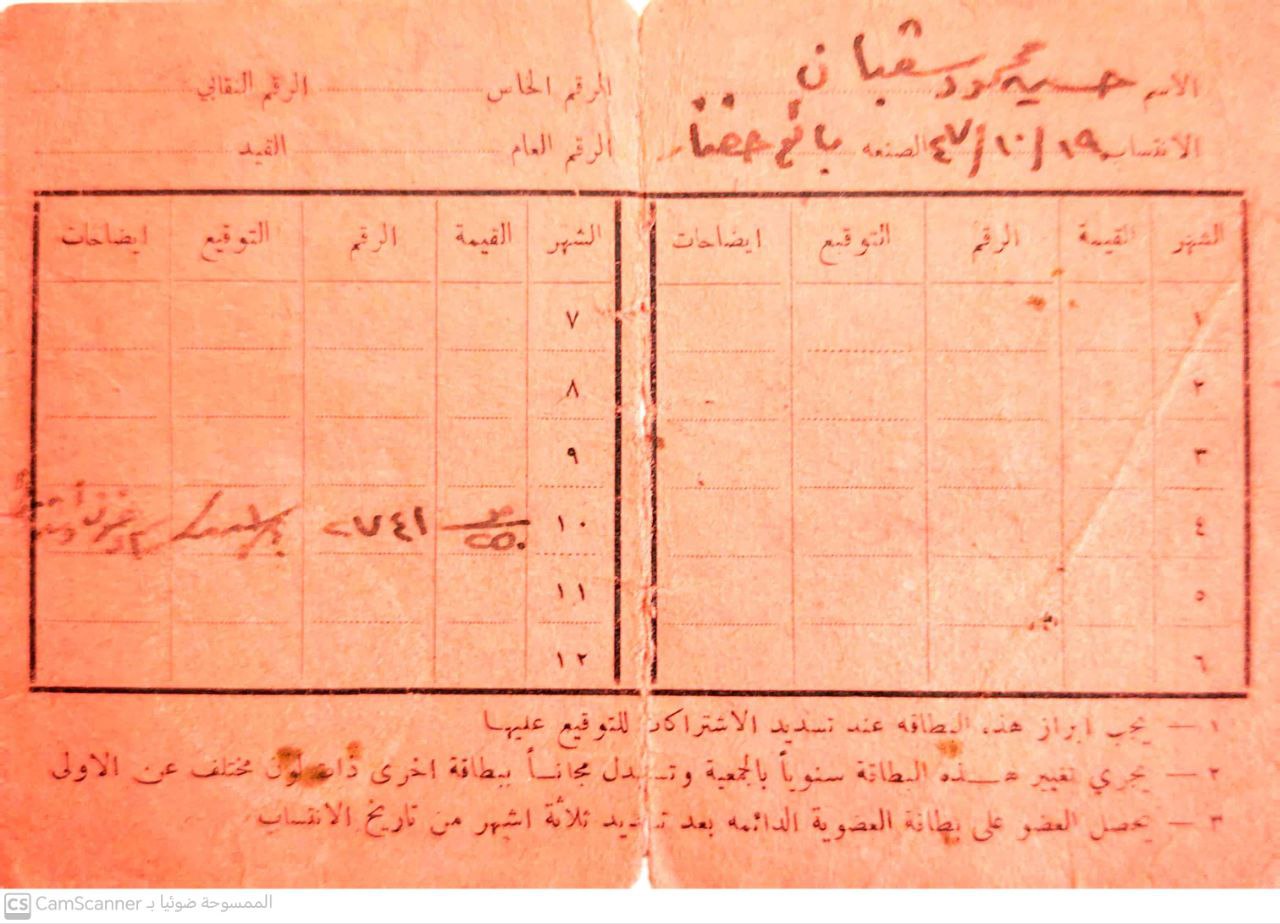 الاسم حسين محمود شعبان الرقم الخاص الرقم النقابي
الانتساب ١٩/١٠/٤٧ الصنعه بائع خضار الرقم العام القيد
الشهر القيمة الرقم التوقيع ايضاحات الشهر القيمة الرقم التوقيع ايضاحات
١ ٧
٢ ٨
٣ ٩
٤ ١٠
٥ ١١
٦ ١٢
١ — يجب ابراز هذه البطاقه عند تسديد الاشتراكات للتوقيع عليها
٢ — يجري تغيير هذه البطاقة سنوياً بالجمعية وتستبدل مجاناً ببطاقة اخرى ذات لون مختلف عن الاولى
٣ — يحصل العضو على بطاقة العضوية الدائمه بعد تسديد ثلاثة اشهر من تاريخ الانتساب
CS CamScanner الممسوحة ضوئيا بـ